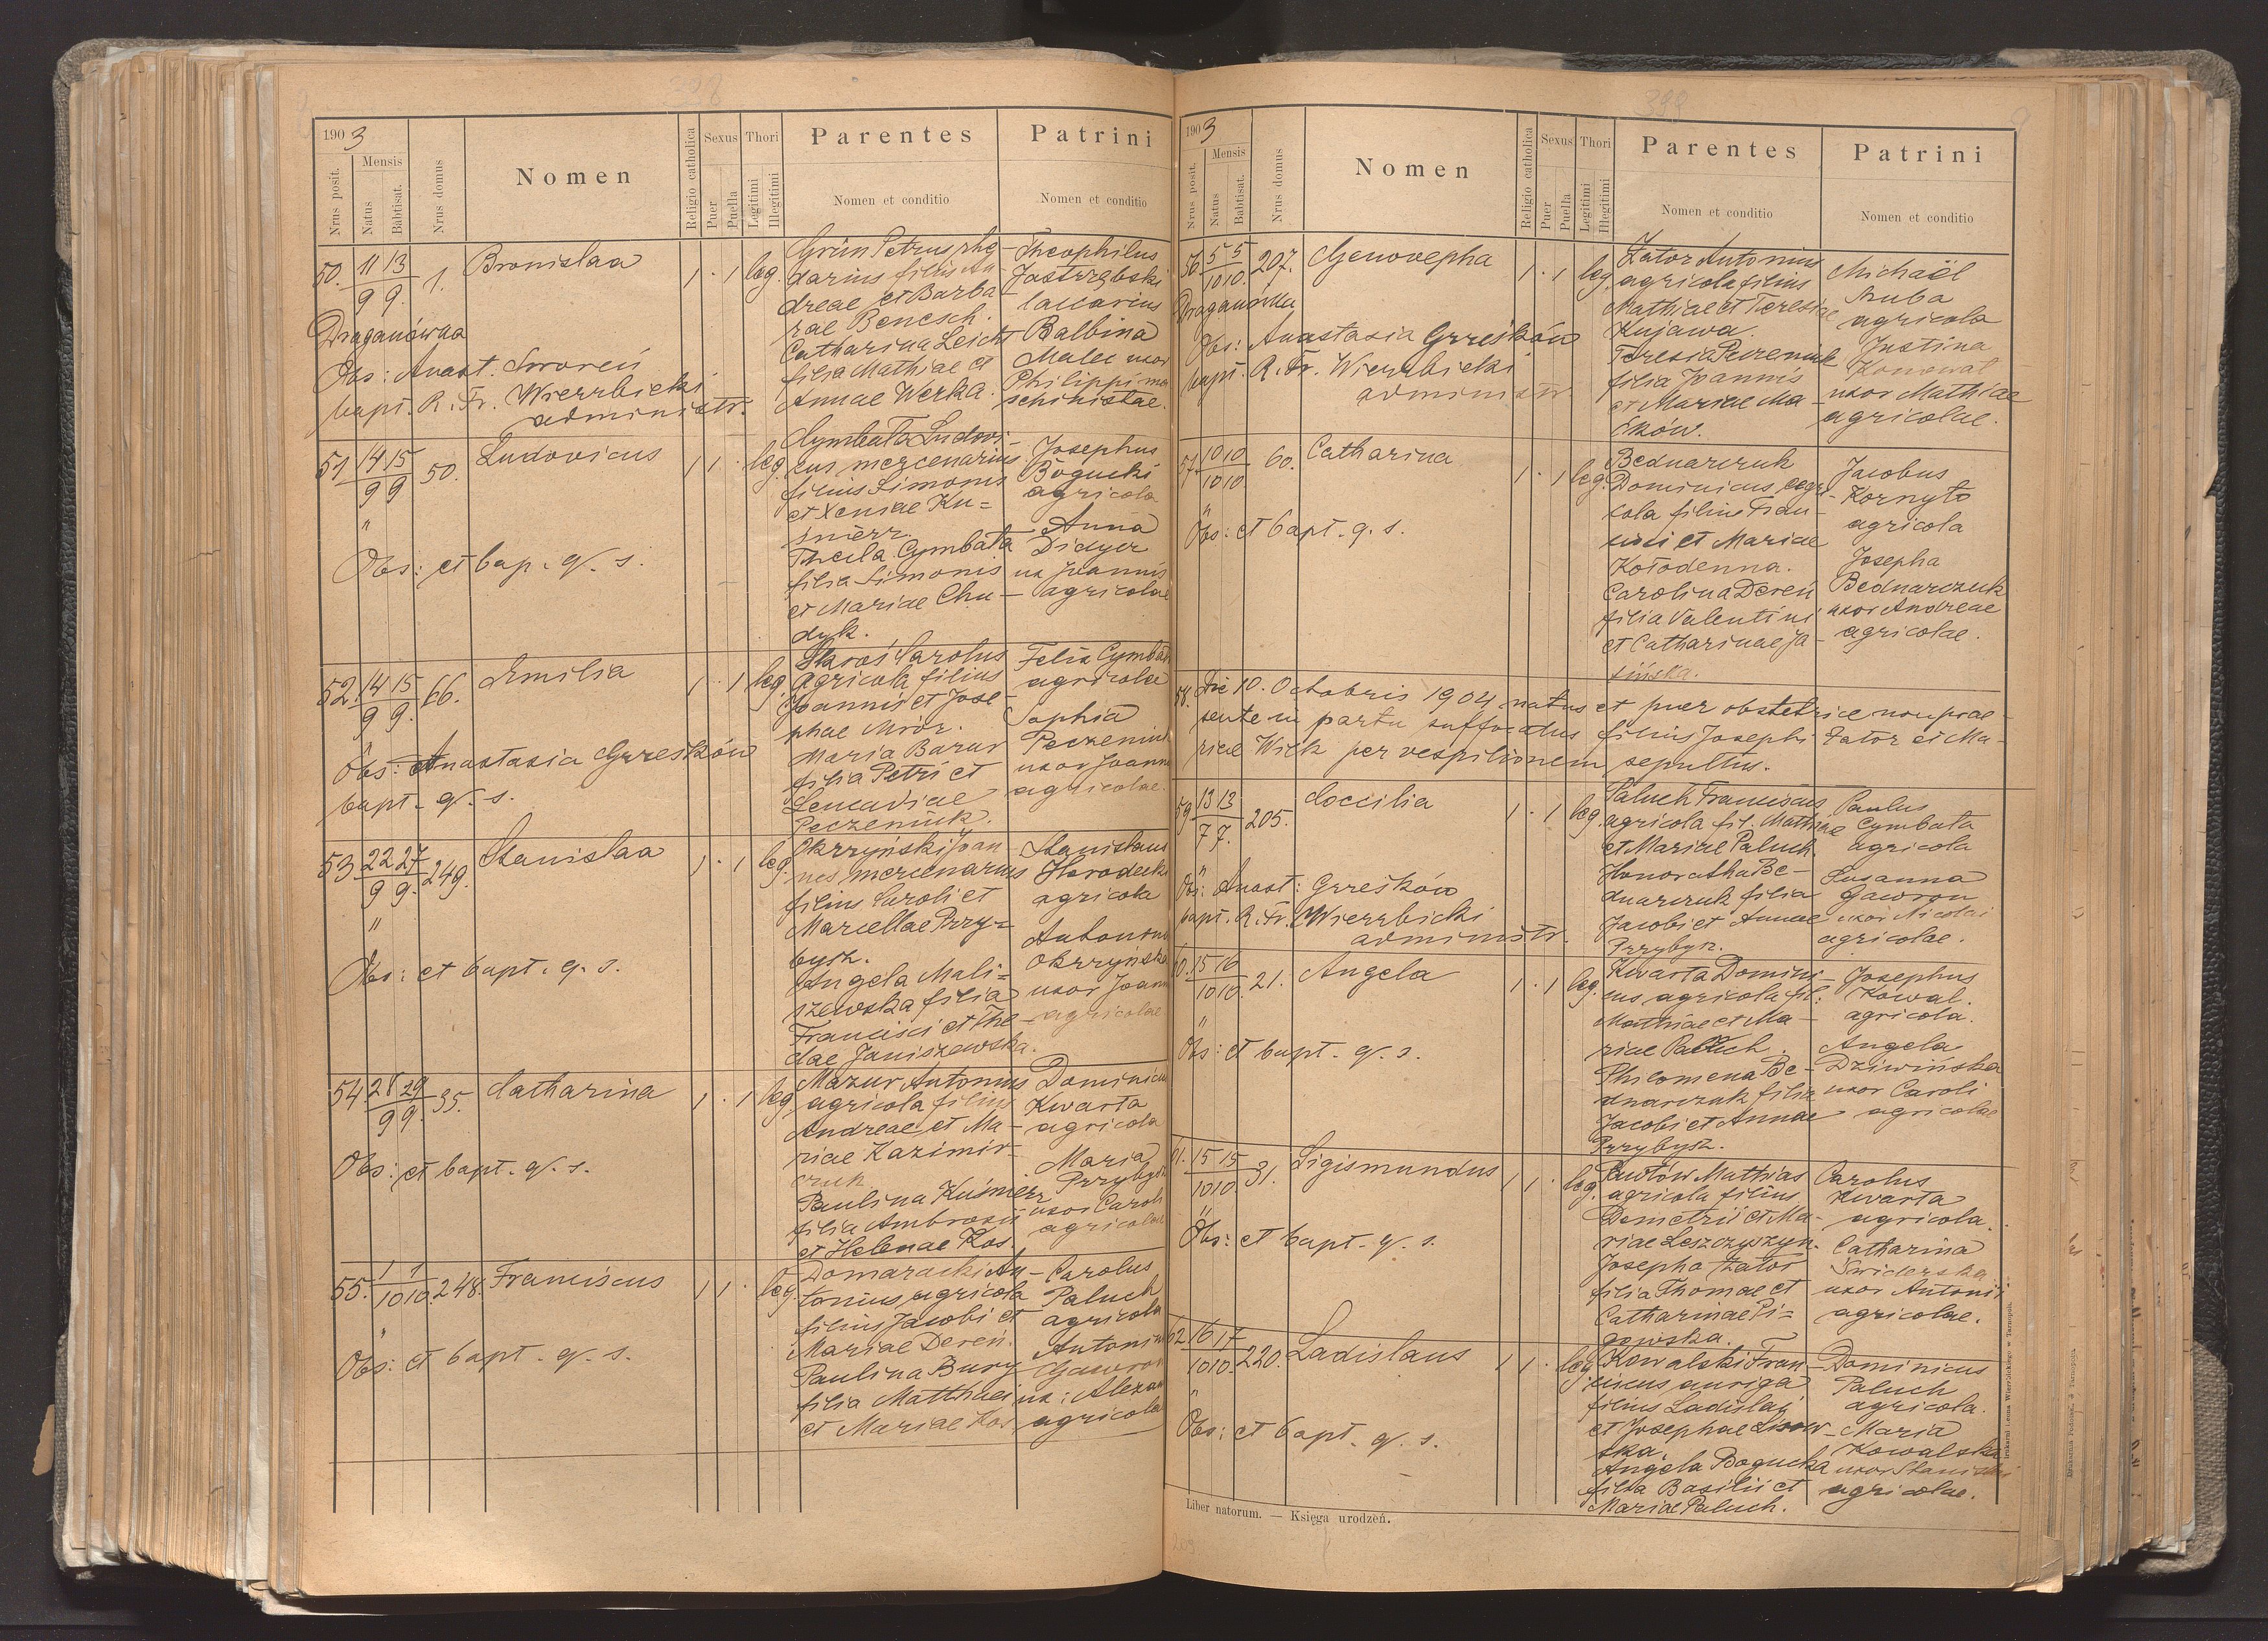 398
1903
Mensis
Nrus posit.
Natus
Babtisat.
Nrus domus
Nomen
Religio catholica
Sexus
Puer
Puella
Thori
Legitimi
Illegitimi
Parentes
Nomen et conditio
Patrini
Nomen et conditio
50. 11 13 1. Bronislaa 1 . 1 leg.
9 9.
Draganówka
Obs: Anast.
bapt. R. Fr. Wierzbicki
administr.
Grün Petrus
darius filius An-
dreae et Barba-
rae Benesch.
Catharina Leicht
filia Mathiae et
Annae Werka.
Theophilus
Jastrząbski
Balbina
Malec uxor
Philippi ma
schinistae.
51 14 15 50. Ludovicus 1 1 . leg.
9 9
"
Obs: et bap. q. s.
Cymbała Ludovi-
cus mercenarius
filius Simonis
et Xeniae Ku-
śnierz.
Thecla Cymbała
filia Simonis
et Mariae Chu-
dyk.
Josephus
Bogucki
agricola
Anna
Didyer
ux Joannis
agricolae
52. 14 15 66. Emilia 1 . 1 leg.
9 9.
Obs: Anastasia Grześków
bapt. q. s.
Karos Carolus
agricola filius
Joannis et Jose-
phae Mróz.
Maria Bazur
filia Petri et
Leucadiae
Peczeniuk.
Felix Cymbała
agricola
Sophia
Peczeniuk
uxor Joann
agricolae.
53. 22 27 249. Stanislaa 1 . 1 leg.
9 9.
"
Obs: et bapt. q. s.
Okrzyński Joan-
nes mercenarius
filius Caroli et
Marcellae Przy-
bysz.
Angela Mali-
szewska filia
Francisci et The-
clae Janiszewska.
Stanislaus
Horodecki
agricola
Antonina
Okrzyńska
uxor Joann
agricolae
54. 28 29 35. Catharina 1 . 1 leg.
9 9.
Obs: et bapt. q. s.
Mazur Antonius
agricola filius
Andreae et Ma-
riae Kazimir-
czuk.
Paulina Kuśnierz
filia Ambrosii
et Helenae Kos.
Dominicus
Kwarta
agricola
Maria
Przybysz
uxor Caroli
agricolae
55. 1 1 248. Franciscus 1 1 . leg.
10 10.
"
Obs: et bapt. q. s.
Domaracki An-
tonius agricola
filius Jacobi et
Mariae Dereń.
Paulina Bury
filia Matthaei
et Mariae Kos
Carolus
Paluch
agricola
Antonina
Gawron
ux: Alexan
agricola
399
1903
Mensis
Nrus posit.
Natus
Babtisat.
Nrus domus
Nomen
Religio catholica
Sexus
Puer
Puella
Thori
Legitimi
Illegitimi
Parentes
Nomen et conditio
Patrini
Nomen et conditio
56. 5 5 207. Genovepha 1 . 1 leg.
10 10.
Draganówka
Obs: Anastasia Grześków
bapt. R. Fr. Wierzbicki
administr.
Zator Antonius
agricola filius
Mathiae et Teresiae
Kujawa.
Teresia Peczeniuk
filia Joannis
et Mariae Ma-
ćków.
Michaël
agricola
Justina
Konowal
uxor Mathiae
agricolae.
57. 10 10 60. Catharina 1 . 1 leg.
10 10.
"
Obs: et bapt. q. s.
Bednarczuk
Dominicus agri-
cola filius Fran-
cisci et Mariae
Kołodenna.
Carolina Dereń
filia Valentini
et Catharinae Ja-
sińska.
Jacobus
Kornyło
agricola
Josepha
Bednarczuk
uxor Andreae
agricolae.
58. Die 10. Octobris 1904 natus et puer obstetrice non prae-
sente in partu suffocatus filius Josephi Zator et Ma-
riae Wilk per vespilionem sepultus.
59. 13 13 205. Coecilia 1 . 1 leg.
7 7.
"
Obs: Anast: Grześków
bapt. R. Fr. Wierzbicki
administr.
Paluch Franciscus
agricola fil. Mathiae
et Mariae Paluch.
Honoratha Be-
dnarczuk filia
Jacobi et Annae
Przybysz.
Paulus
Cymbała
agricola
Susanna
Gawron
uxor Nicolai
agricolae.
60. 15 16 21. Angela 1 . 1 leg.
10 10.
"
Obs: et bapt. q. s.
Kwarta Domini-
cus agricola fil:
Mathiae et Ma-
riae Paluch.
Philomena Be-
dnarczuk filia
Jacobi et Annae
Przybysz.
Josephus
Kowal.
agricola.
Angela
Dziwińska
uxor Caroli
agricolae
61. 15 15 31. Sigismundus 1 1 . leg.
10 10.
"
Obs: et bapt. q. s.
Pawłów Mathias
agricola filius
Demetrii et Ma-
riae Leszczyszyn.
Josepha Zator
filia Thomae et
Catharinae Pi-
gowska.
Carolus
Kwarta
agricola.
Catharina
Świderska
uxor Antonii
agricolae.
62. 16 17 220. Ladislaus 1 1 . leg.
10 10.
"
Obs: et bapt. q. s.
Kowalski Fran-
ciscus auriga
filius Ladislai
et Josephae Lisow-
ska.
Angela Bogucka
filia Basilii et
Mariae Paluch.
Dominicus
Paluch
agricola.
Maria
Kowalska
uxor Stanislai
agricolae.
Liber natorum. — Księga urodzeń.
Drukarni Leona Wierzbickiego w Tarnopolu.